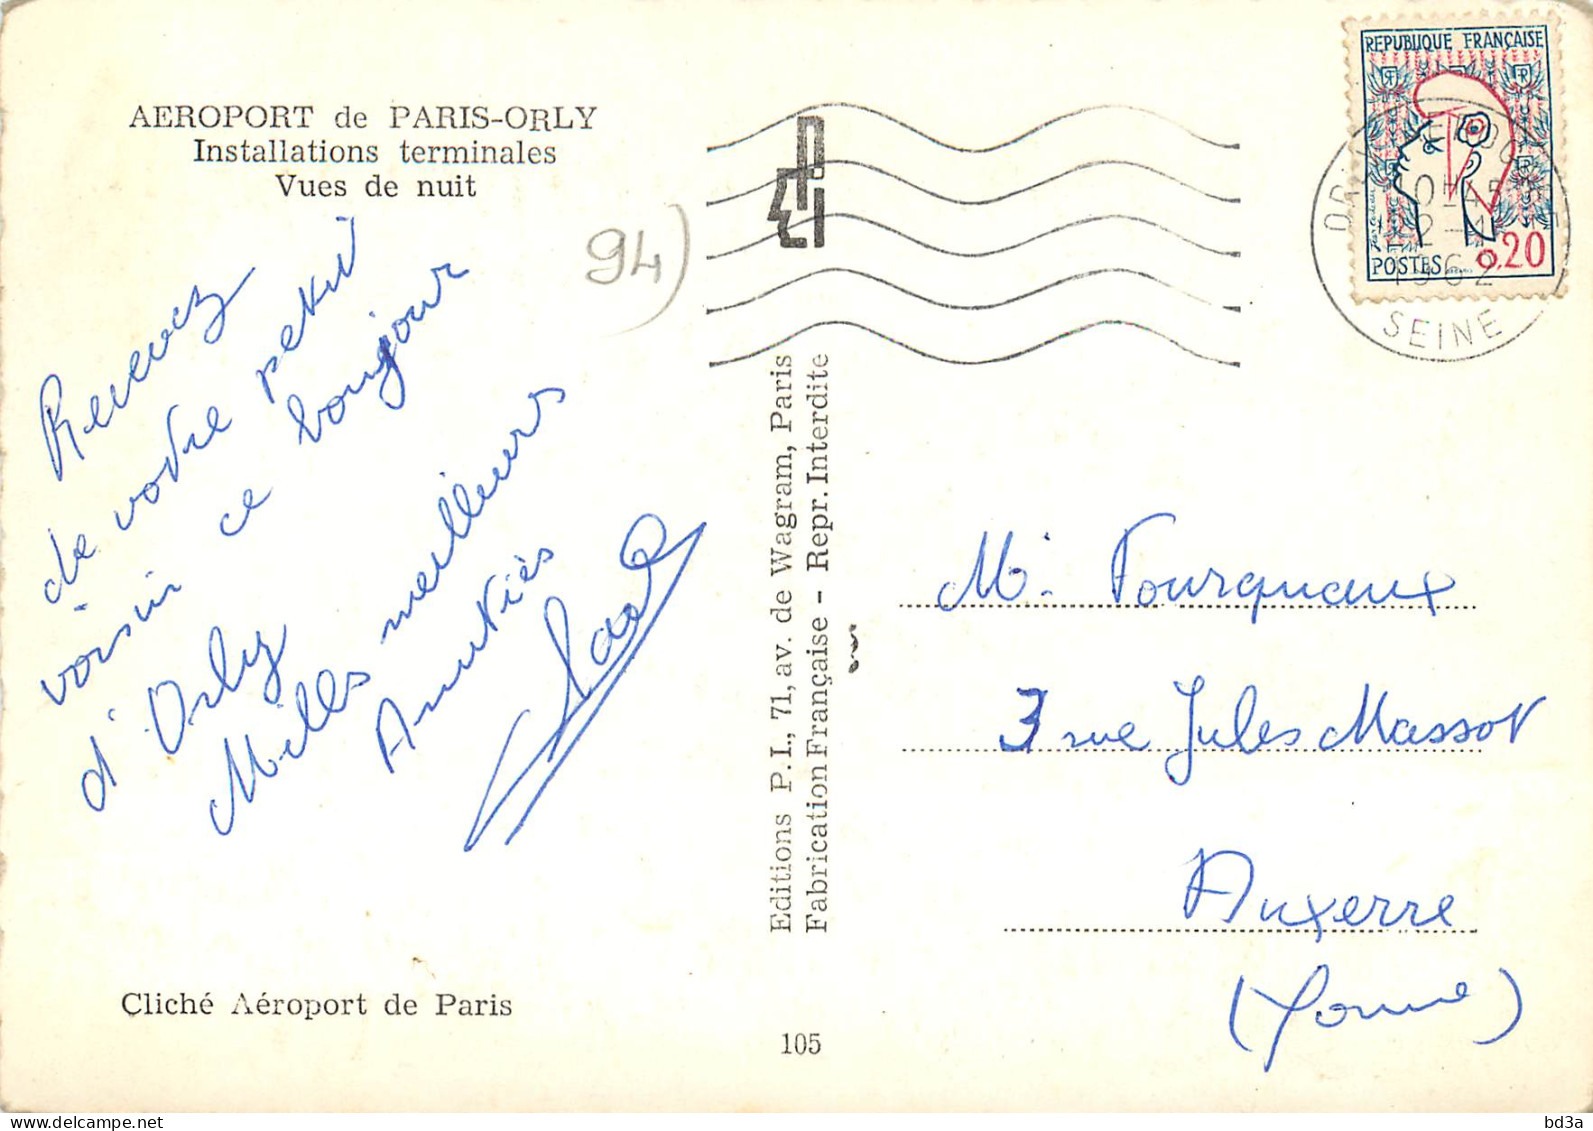 AEROPORT de PARIS-ORLY
Installations terminales
Vues de nuit
94)
Recevez
de votre petit
voisin ce bonjour
d'Orly
Mills meilleurs
Amitiés
Cliché Aéroport de Paris
Editions P.I., 71, av. de Wagram, Paris
Fabrication Française - Repr. Interdite
105
REPUBLIQUE FRANÇAISE
POSTES 0,20
1962
SEINE
M. Fourquaux
3 rue Jules Massot
Auxerre
(Yonne)
bd3a